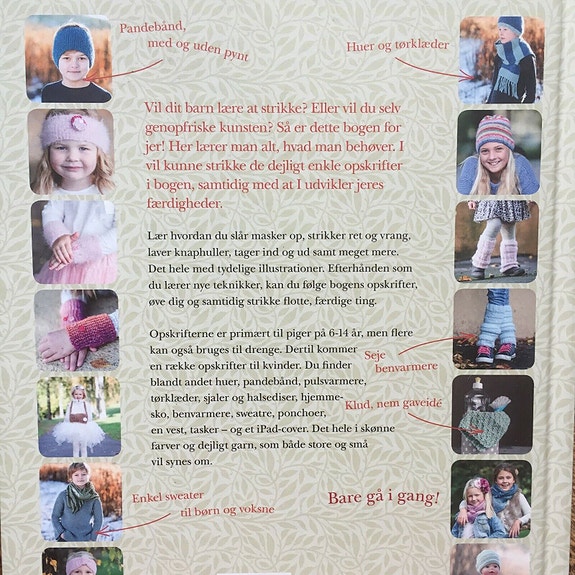 Pandebånd,
med og uden pynt
Huer og tørklæder
Vil dit barn lære at strikke? Eller vil du selv
genopfriske kunsten? Så er dette bogen for
jer! Her lærer man alt, hvad man behøver. I
vil kunne strikke de dejligt enkle opskrifter
i bogen, samtidig med at I udvikler jeres
færdigheder.
Lær hvordan du slår masker op, strikker ret og vrang,
laver knaphuller, tager ind og ud samt meget mere.
Det hele med tydelige illustrationer. Efterhånden som
du lærer nye teknikker, kan du følge bogens opskrifter,
øve dig og samtidig strikke flotte, færdige ting.
Opskrifterne er primært til piger på 6-14 år, men flere
kan også bruges til drenge. Dertil kommer
en række opskrifter til kvinder. Du finder
blandt andet huer, pandebånd, pulsvarmere,
tørklæder, sjaler og halsedisser, hjemme-
sko, benvarmere, sweatre, ponchoer,
en vest, tasker – og et iPad-cover. Det hele i skønne
farver og dejligt garn, som både store og små
vil synes om.
Seje
benvarmere
Klud, nem gaveidé
Enkel sweater
til børn og voksne
Bare gå i gang!